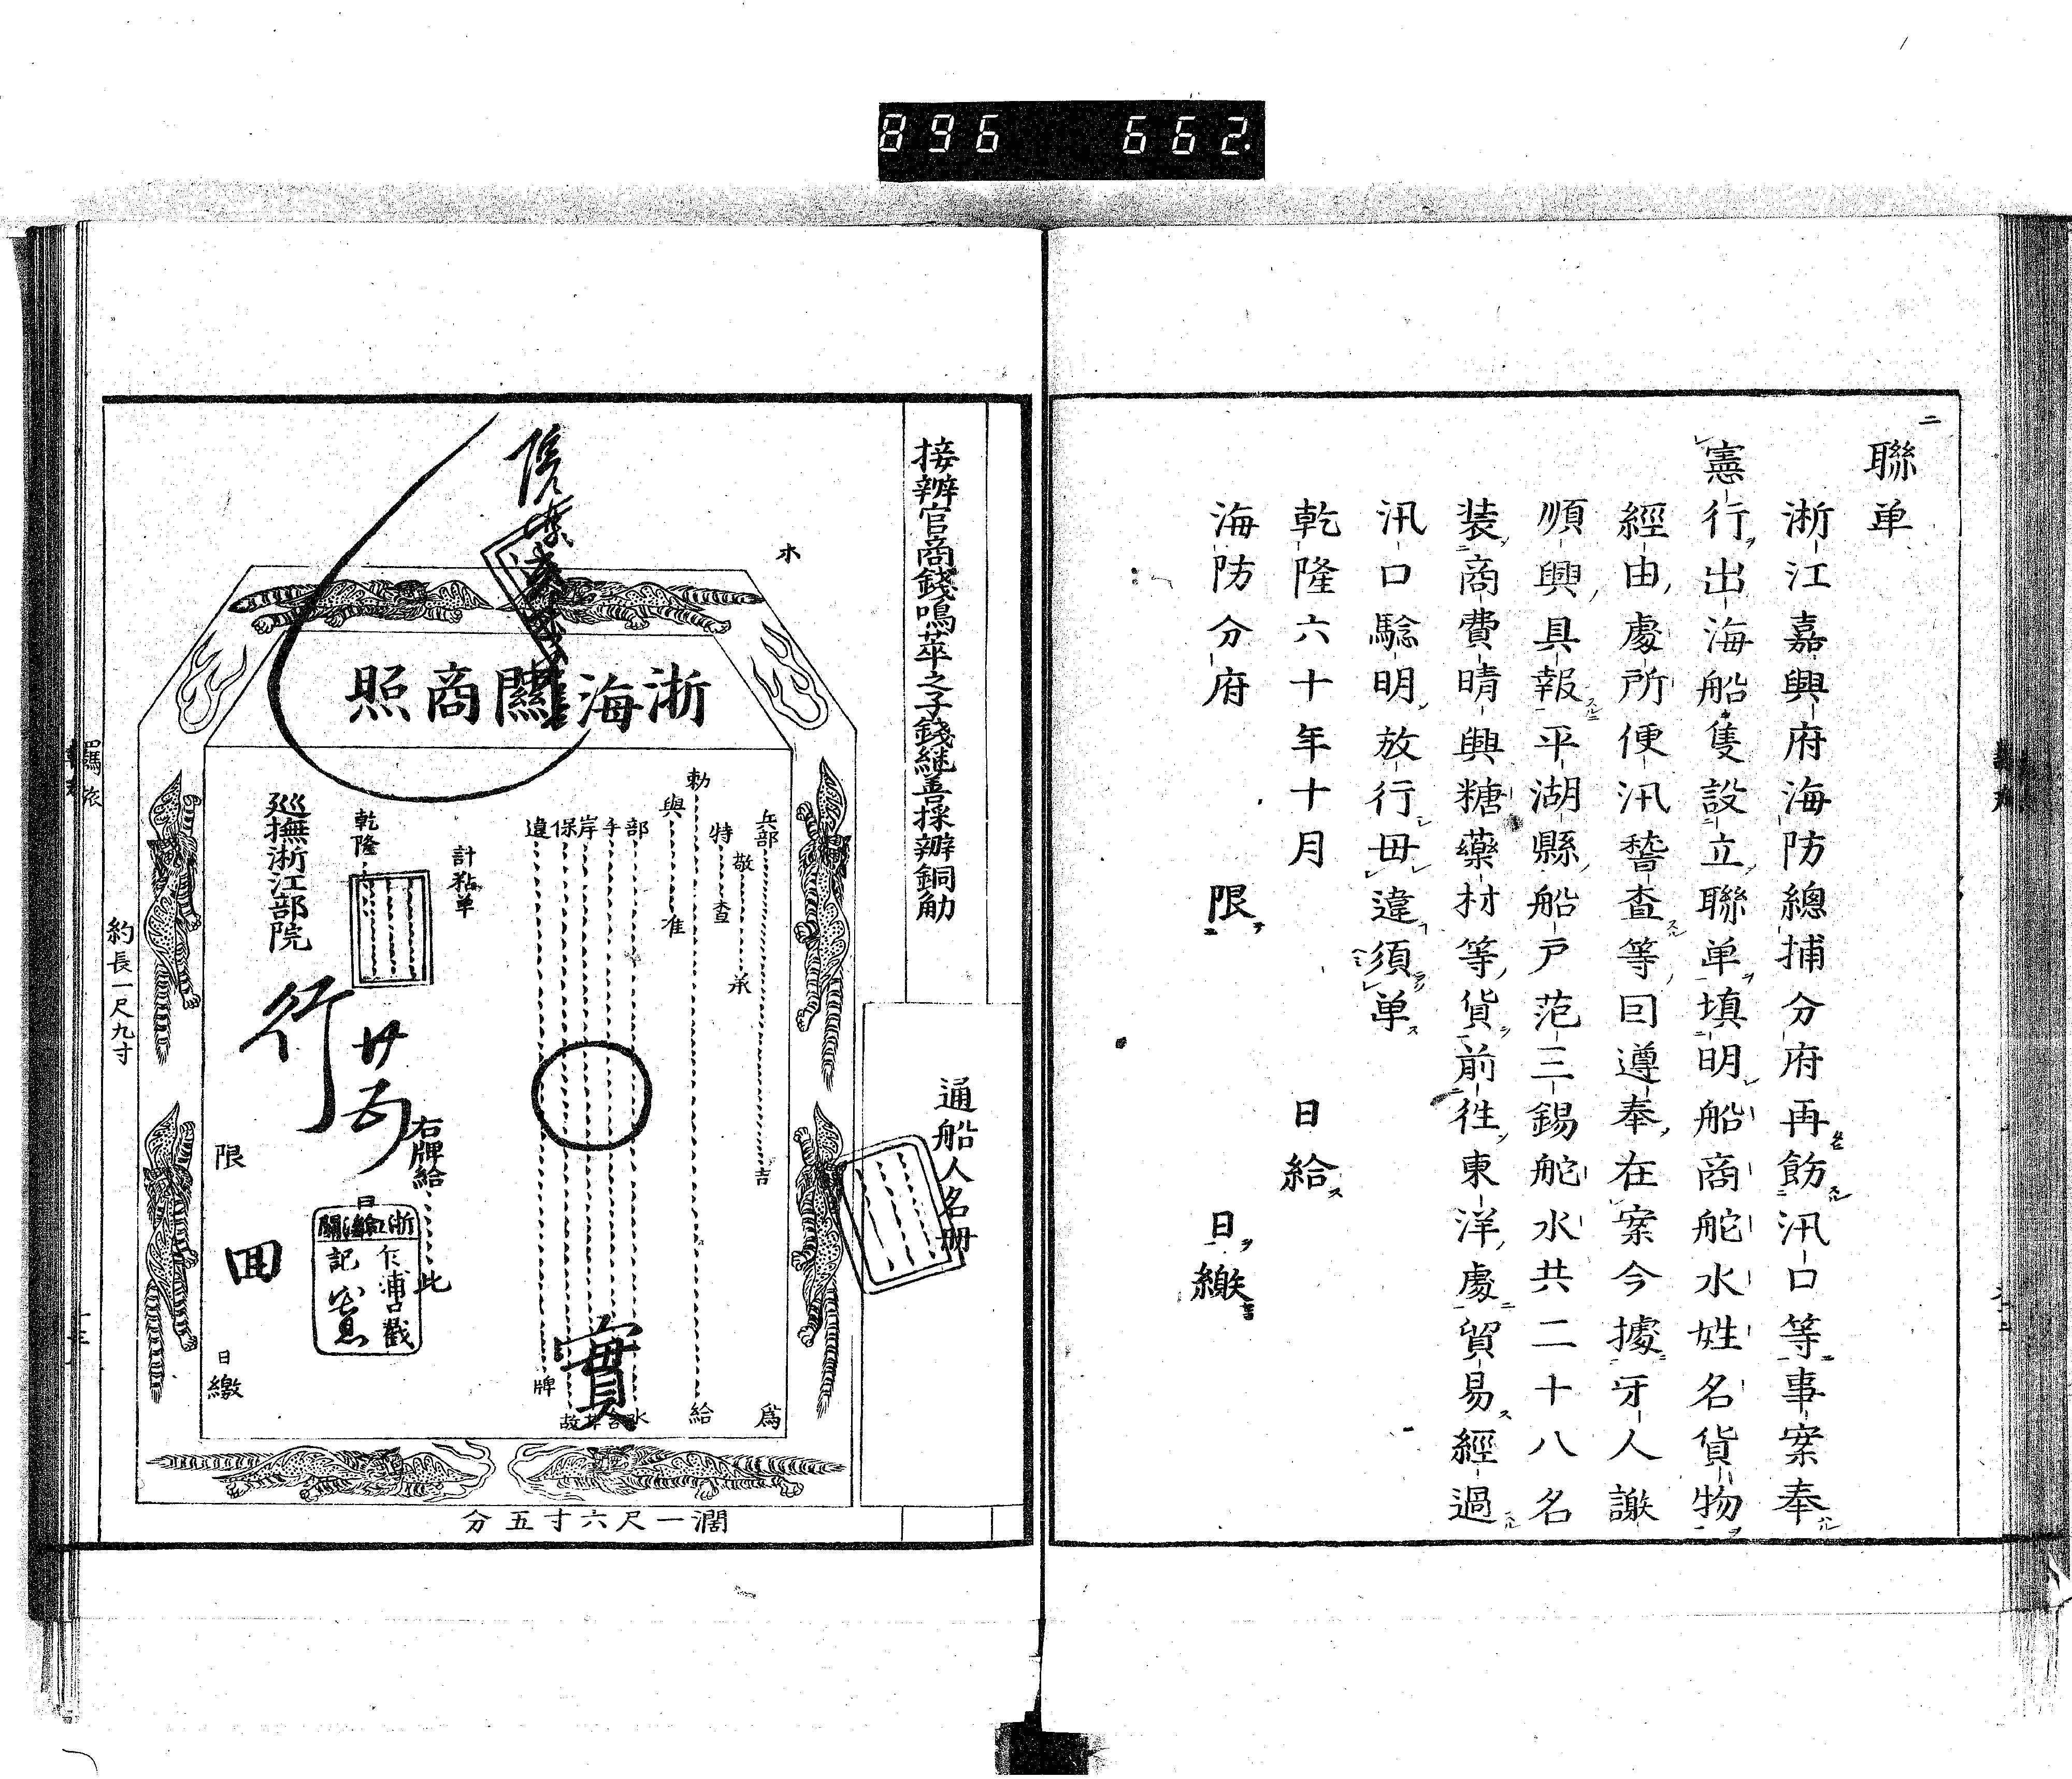 896 662.
二
聯单
浙江嘉興府海防總捕分府再飭汛口等事案奉
憲行出海船隻設立聯单填明船商舵水姓名貨物
經由處所便汛稽查等因遵奉在案今據牙人謝
順興具報平湖縣船戸范三錫舵水共二十八名
装商費晴興糖藥材等貨前往東洋處貿易經過
汛口驗明放行毋違須单
乾隆六十年十月 日給
海防分府 限 日繳
接辦官商錢鳴萃之子錢継善採辦銅觔
通船人名冊
浙海關商照
兵部 吉 爲
敬 承
特 查
勅 給
與 准
部 水
手
岸
保 故
違 牌
實
計粘单
乾隆
右牌給 此
廿
日
浙江海關
乍浦口戳
記
巡撫浙江部院
行
限 日繳
約長一尺九寸
濶一尺六寸五分